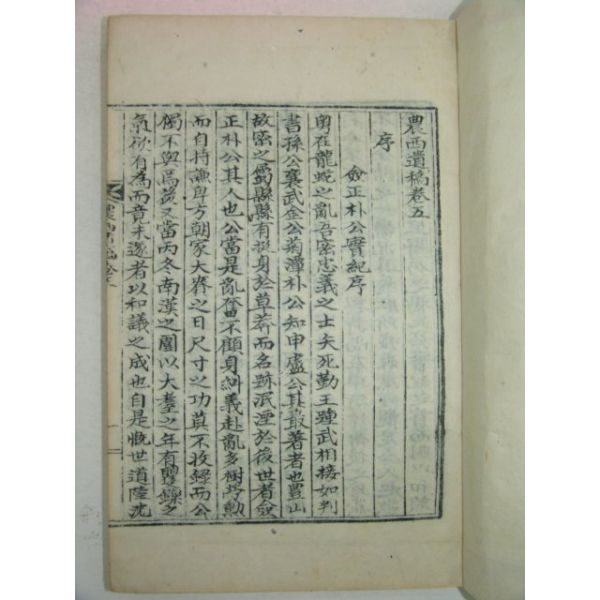 農西遺稿卷五
序
僉正朴公實紀序
粤在龍蛇之亂吾密忠義之士矢死勤王踵武相接如判
書孫公襄武金公菊潭朴公知申盧公其最著者也豊山
故密之蜀縣縣有挺身於草莽而名跡泯湮於後世者僉
正朴公其人也公當是亂奮不顧身糾義赴亂多樹勞勲
而自持謙卑方朝家大賚之日尺寸之功莫不收錄而公
獨不與焉及當丙冬南漢之圍以大耋之年有矍鑠之
氣欲有爲而竟未遂者以和議之成也自是慨世道陸沈